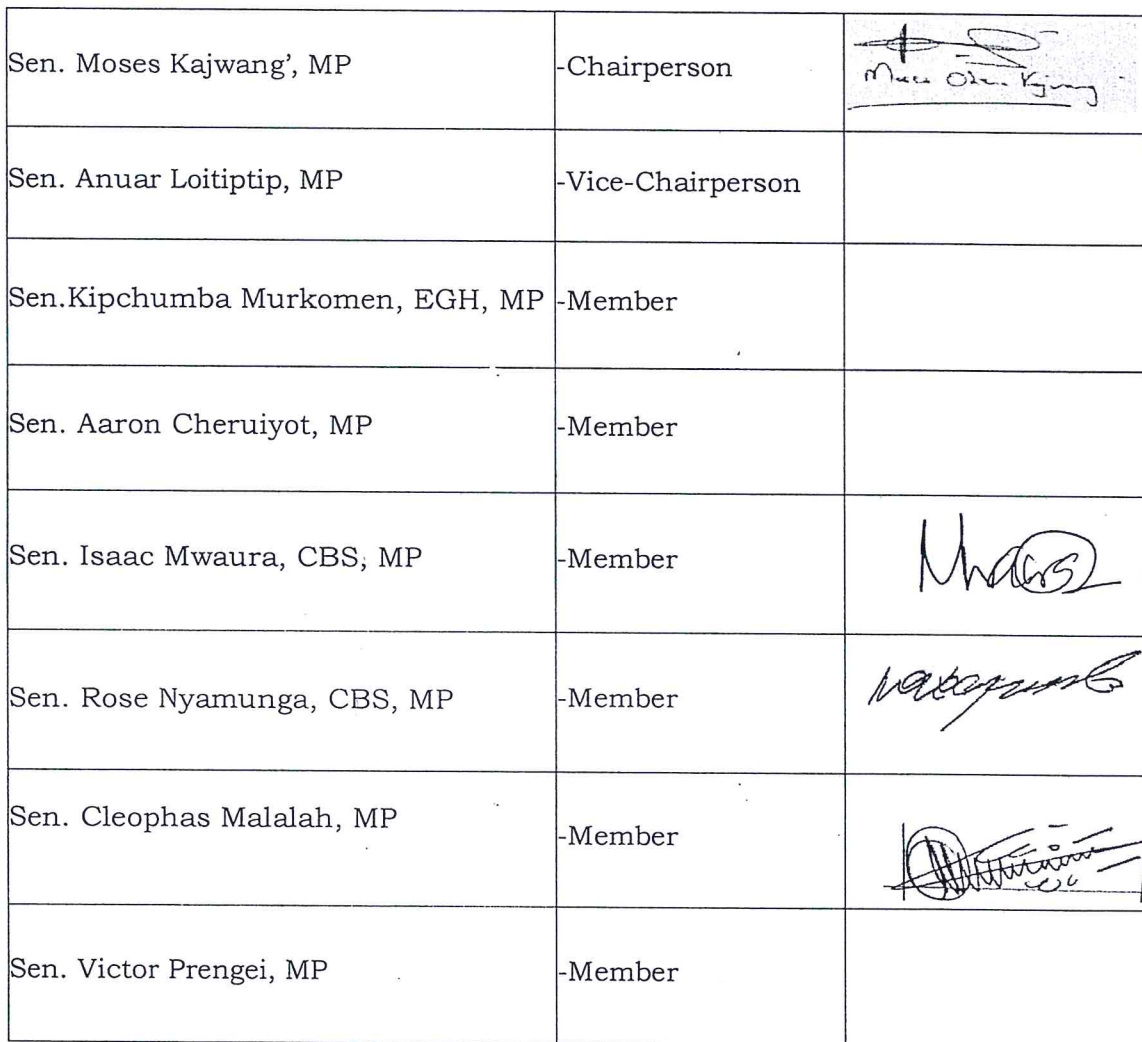 Sen. Moses Kajwang’, MP -Chairperson
Sen. Anuar Loitiptip, MP -Vice-Chairperson
Sen.Kipchumba Murkomen, EGH, MP -Member
Sen. Aaron Cheruiyot, MP -Member
Sen. Isaac Mwaura, CBS, MP -Member
Sen. Rose Nyamunga, CBS, MP -Member
Sen. Cleophas Malalah, MP -Member
Sen. Victor Prengei, MP -Member